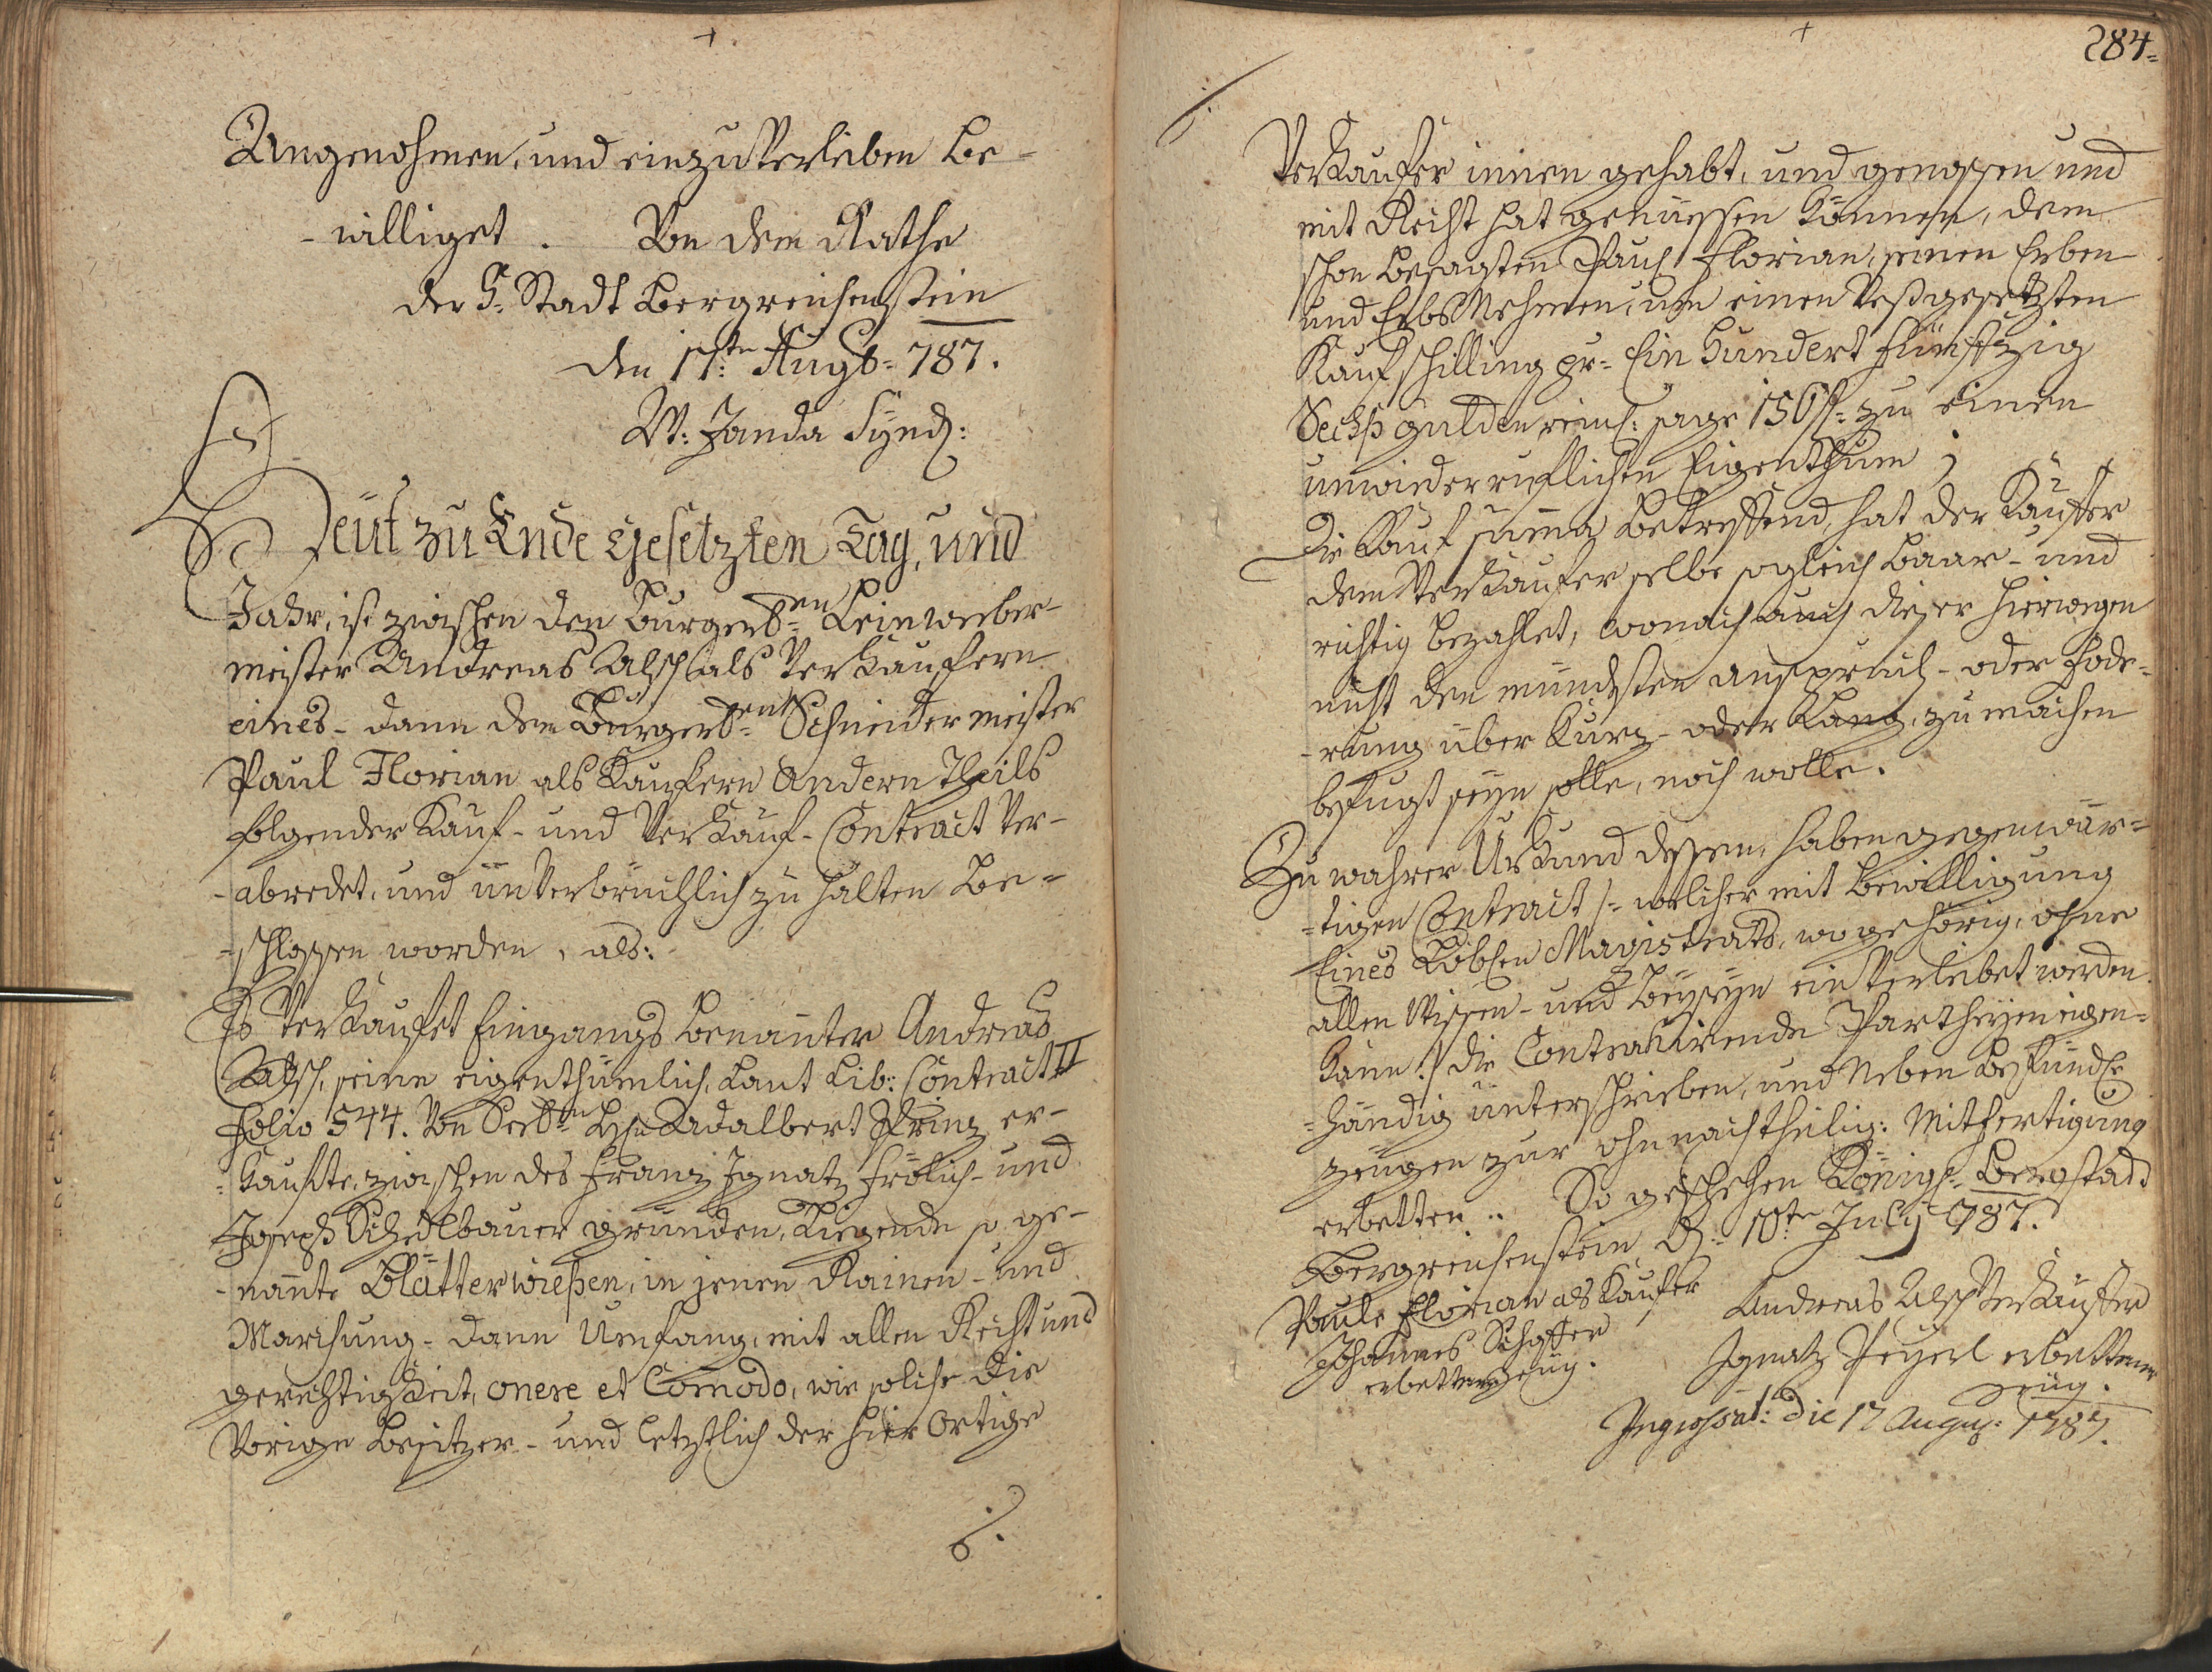 Angenohmen, und einzuverleiben Be-
-williget. Von dem Rathe
der K: Stadt Bergreichenstein
den 17ten Augst= 787.
W: Janda Synd:
Heut zu Ende Gesetzten Tag, und
Jahr, ist zwischen den Burgerl=en Leinweeber-
meister Andreas Absch als Verkauffern
eines- dann dem Burgerl=en Schneider meister
Paul Florian als Kaufern Andern Theils
folgender Kauf- und Verkauf-Contract Ver-
-abredet, und unverbrüchlich zu halten Be-
-schlossen worden, als:
Es Verkaufet Eingangs benannter Andreas
Absch, seine eigenthümlich, Laut Lib: Contract II
folio 544. Von Seel=n H Adalbert Prinz er-
-kaufte, zwischen des Franz Ignatz Frölich- und
Joseph Schedlbauer gründen, Liegende so ge-
-nante Blätterwießen, in jenen Rainen- und
Marchung- dann Umfang, mit allen Recht und
gerechtigkeit, onere et Comodo, wie solche die
Vorige Besitzer- und letztlich der hier Ortige
./.
284=
./.
Verkaufer innen gehabt, und genossen und
mit Recht hat genüessen können, dem
schon besagten Paul Florian, seinen Erben
und Erbs Nehmern, um einen Vestgesetzten
Kaufschilling pr= Ein Hundert Fünfzig
Sechß gulden reinl: sage 156 f= zu einen
unwiederruflichen Eigenthum;
Die Kauf suma Betreffend, hat der Käuffer
dem Verkaufer selbe sogleich Baar- und
richtig bezahlet, wonach auch dieser hierwegen
nicht den mündesten anspruch- oder Fode-
-rung über Kurz- oder Lang, zu machen
befugt seyn solle, noch wolle.
Zu wahrer Urkund dessen, haben gegenwär=
=tigen Contract /: welcher mit Bewilligung
Eines Löblen Magistrats, wo gehörig, ohne
allen Wissen- und Beyseyn einverleibet werden
kann :/ die Contrahirende Partheyen eigen=
=händig unterschrieben, und Neben Befundl
zeugen zur ohnnachtheilig: Mitfertigung
erbetten.. So geschehen Königl= Bergstadt
Bergreichenstein d: 10ten July 787.
Paule Florian als Kaufer
Andreas Absch Verkauffer
Johannes Schaffer
erbettner Zeug.
Ignatz Peyerl erbettener
Zeüg.
Ingrossat: die 17 Augus: 1787.